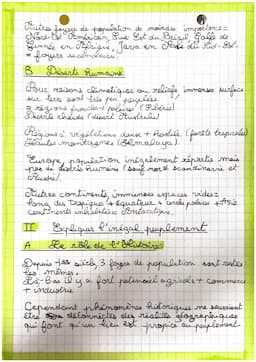 Autres foyers de population de moindre importance =
Nord-Est Américain, Sud Est du Brésil, Golfe de
Guinée en Afrique, Java en Asie du Sud-Est.
= foyers secondaires.
B Déserts humains
Pour raisons climatiques ou reliefs immense surface
sur terre sont très peu peuplées.
= régions froides + polaires (Sibérie)
Déserts chauds (désert Australie)
Régions à végétations dense + hostile (forêts tropicales)
Hautes montagnes (Himalaya).
Europe, population inégalement répartie mais
pas de déserts humains (sauf nord scandinavie et
Russie).
Autres continents, immenses espaces vides =
long du tropique + équateur + cercle polaire + Asie
continents inhabités Antarctique.
II Expliquer l'inégal peuplement
A Le rôle de l'Histoire
Depuis siècle, 3 foyers de population sont restés
les mêmes.
Là-bas il y a fort potentiel agricole + commerce
+ industrie.
Cependant phénomènes historiques ne sauraient
être déconnectés des réalités géographiques
qui font qu'un lieu est propice au peuplement.